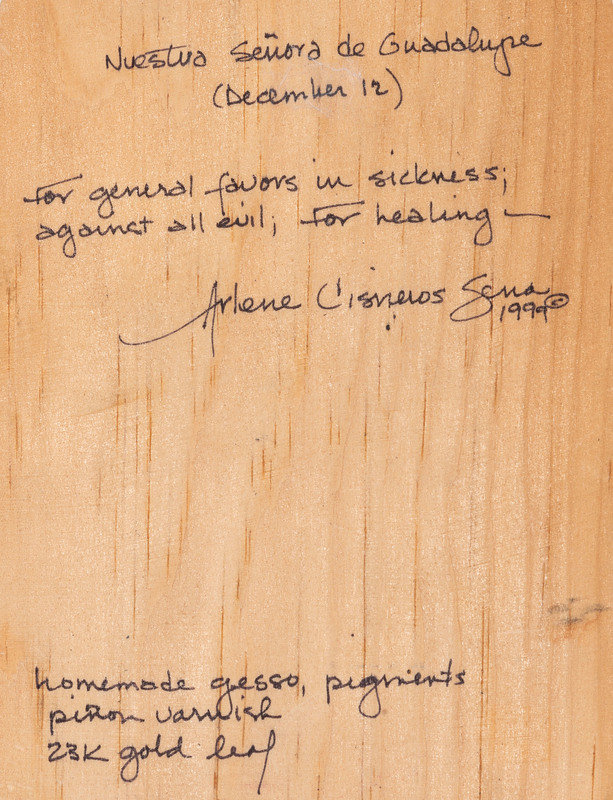 Nuestra Señora de Guadalupe
(December 12)
For general favors in sickness;
against all evil; For healing —
Arlene Cisneros Sena
1999 ©
homemade gesso, pigments
piñon varnish
23K gold leaf